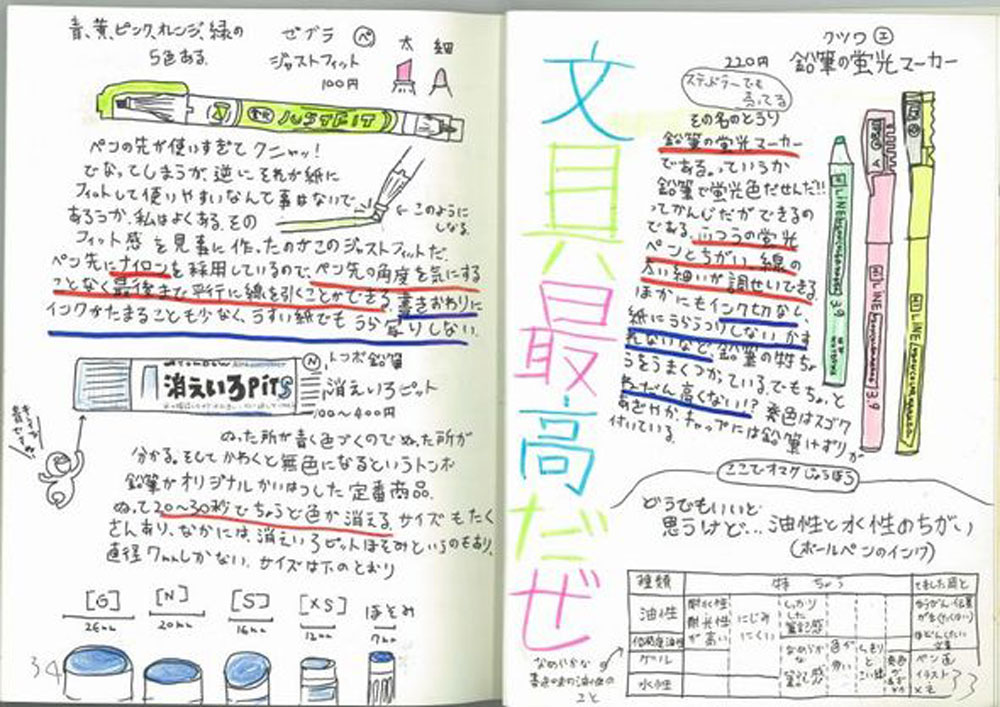 青、黄、ピンク、オレンジ、緑の
5色ある.
ゼブラ ペ
ジャストフィット
100円
太 細
JUSTFIT
ペンの先が使いすぎてクニャッ!
でなってしまうが、逆にそれが紙に
フィットして使いやすいなんて事はないで
あろうか、私はよくある。その
フィット感を見事に作ったのがこのジャストフィットだ.
ペン先にナイロンを採用しているので、ペン先の角度を気にする
ことなく最後まで平行に線を引くことができる。書きおわりに
インクがたまることも少なく、うすい紙でもうら写りしない.
←このように
しなる.
消えいろPiTS
N トンボ鉛筆
消えいろピット
100〜400円
ぬった所が青く色づくのでぬった所が
分かる。そしてかわくと無色になるというトンボ
鉛筆がオリジナルかいはつした定番商品.
ぬって20〜30秒でちょうど色が消える。サイズもたく
さんあり、なかには、消えいろピットほそみというのもあり、
直径7mmしかない。サイズは下のとおり
[G] [N] [S] [XS] ほそみ
26mm 20mm 16mm 12mm 7mm
34
文具最高だぜ
クツワ エ
220円 鉛筆の蛍光マーカー
ステッドラーでも
売ってる
その名のとおり
鉛筆の蛍光マーカー
である。っていうか
鉛筆で蛍光色だせんだ!!
ってかんじだができるの
である。ふつうの蛍光
ペンとちがい、線の
太い細いが調せいできる
ほかにもインク切なし、
紙にうらうつりしない かす
れないなど、鉛筆の特ちょ
うをうまくつかっている。でもちょっと
ねだん高くない!? 発色はスゴク
あざやか。キャップには鉛筆けずりが
付いている.
LINE
3.9
LINE
3.9
LINE
ここでオマケじょうほう
どうでもいいと
思うけど...油性と水性のちがい
(ボールペンのインク)
種類 特ちょう
油性 耐水性・耐光性が高い にじみにくい しっかりした筆記感
低粘度油性
ゲル なめらかな筆記感 色が多い
水性
イラスト
なめらかな
書き味の油性の
こと
33